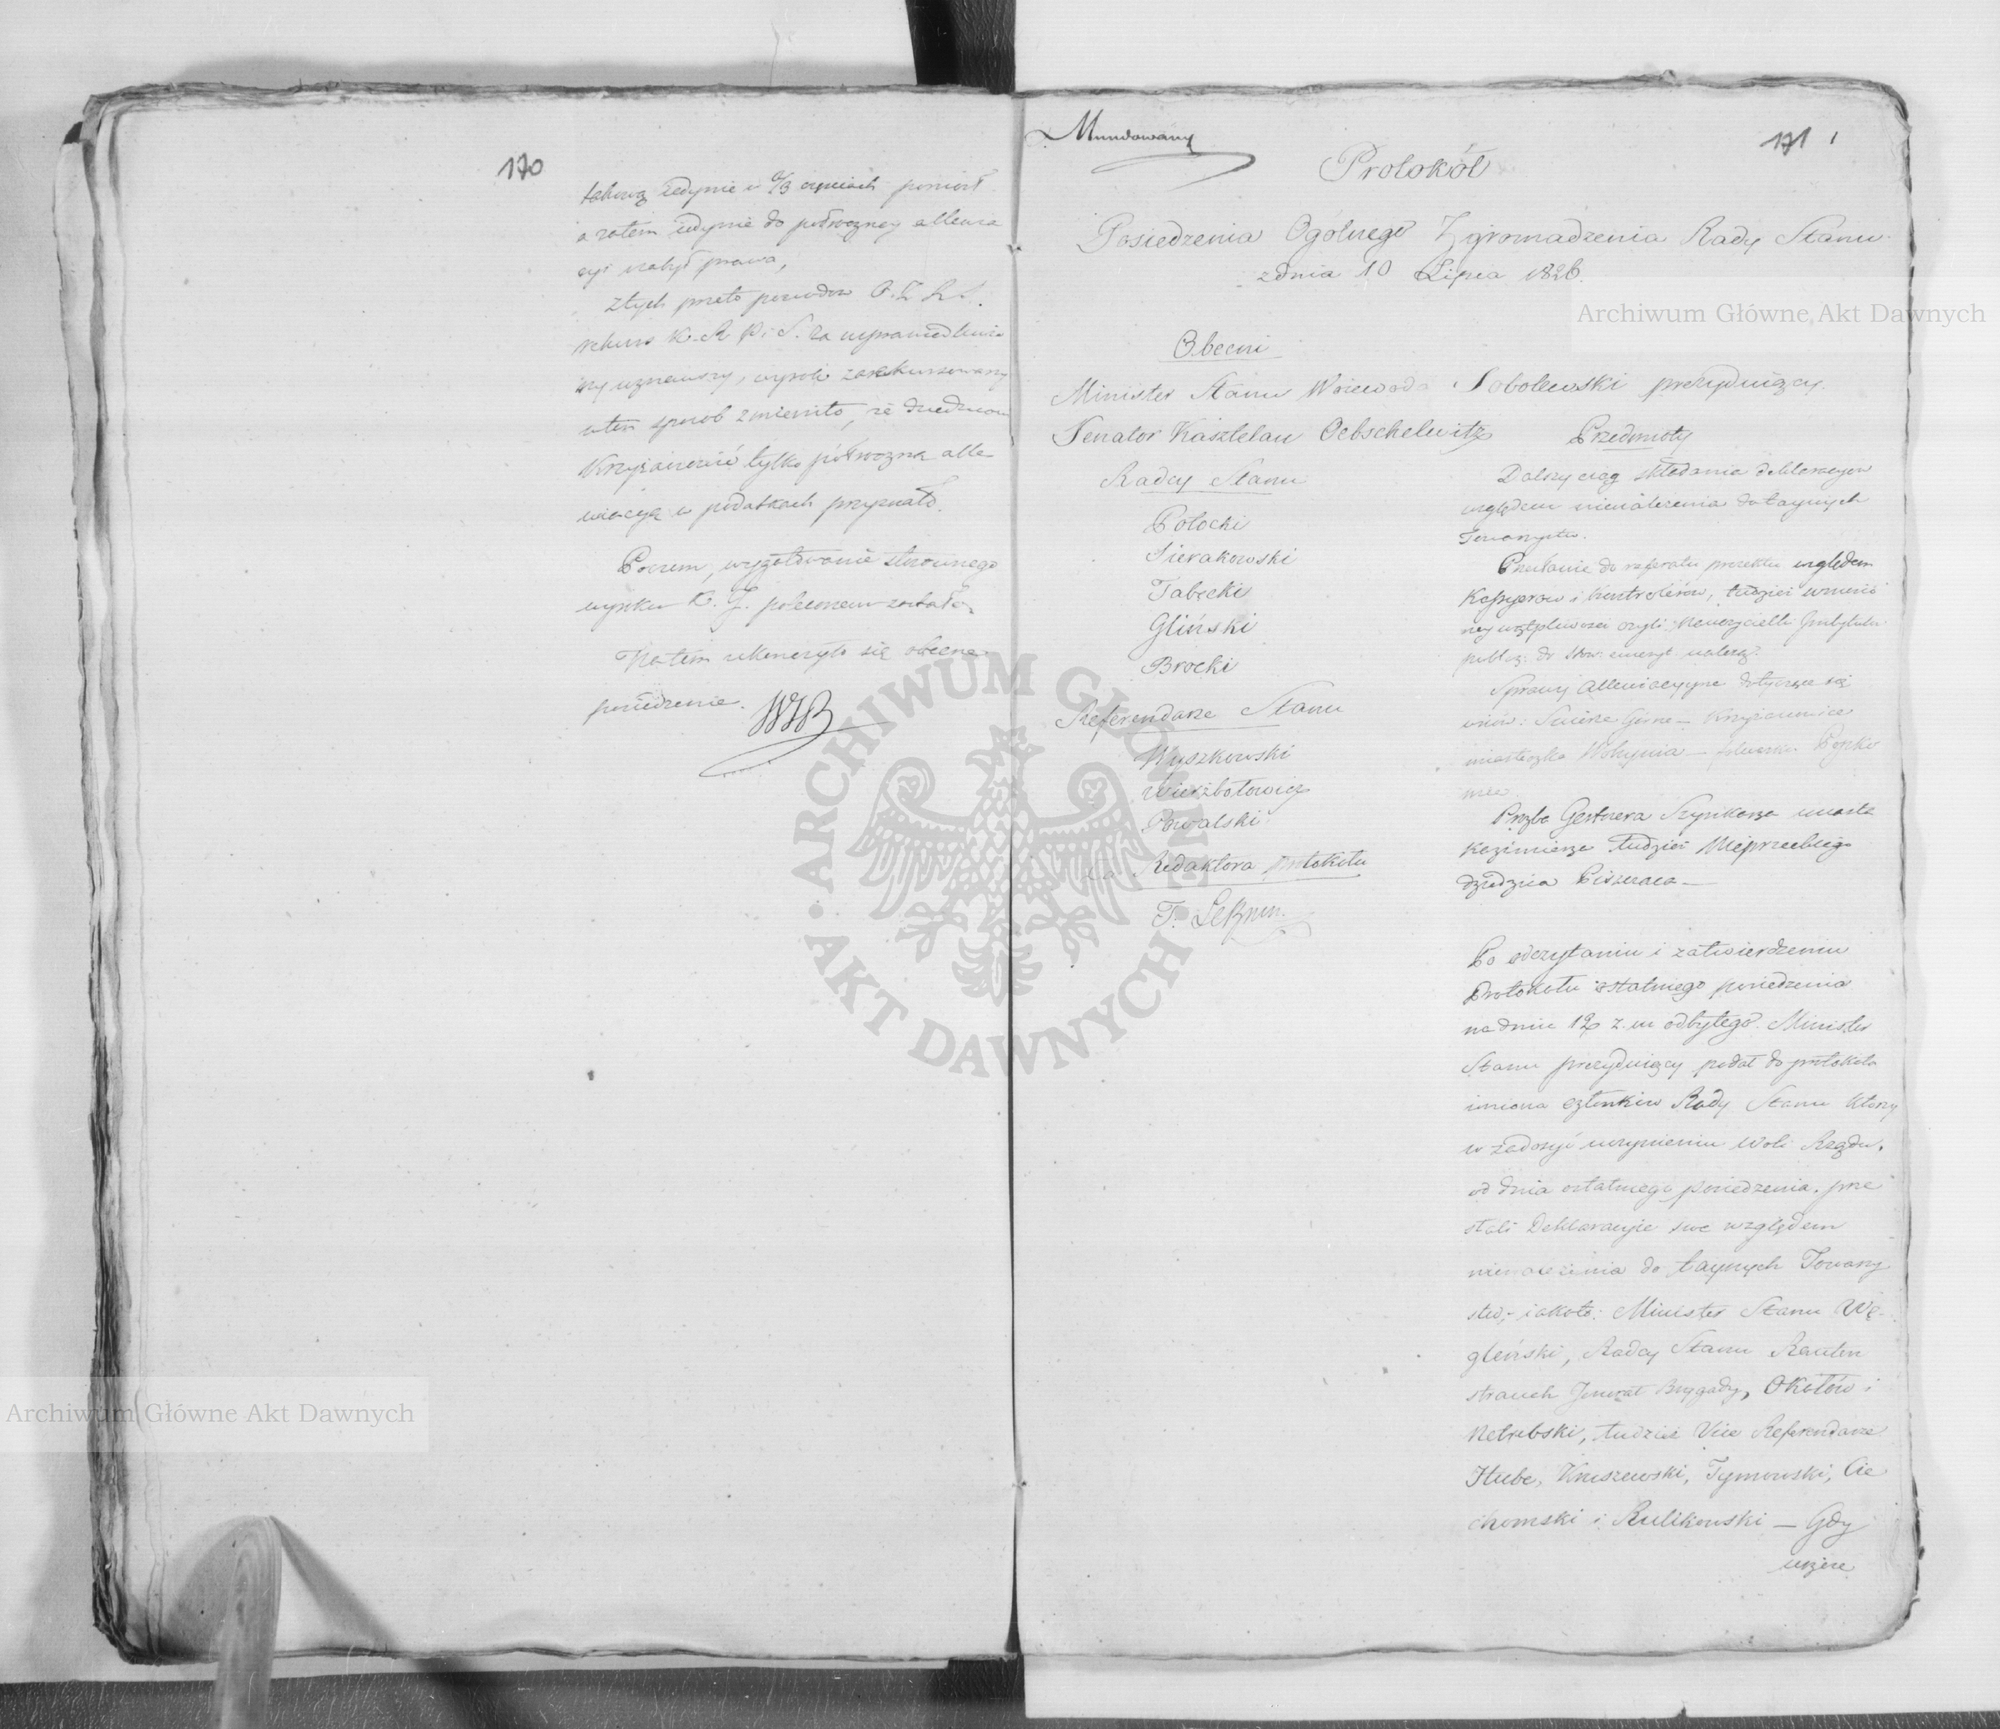 170
takową jedynie w 2/3 częściach poniósł
a zatem jedynie do półroczney allewia
cyi nabył prawa,
Z tych przeto powodów O. Z. R. S.
rekurs K. R. P. i S. za usprawiedliwio
ny uznawszy, wyrok zarekursowany
w ten sposób zmieniło, że dziedzicowi
Krzyżanowic tylko półroczną alle
wiacyą w podatkach przyznało.
Poczem, wygotowanie stosownego
wyroku K. J. poleconem zostało.
Na tem ukończyło się obecne
posiedzenie.
Mundowany
171
Protokół
Posiedzenia Ogólnego Zgromadzenia Rady Stanu
z dnia 10 Lipca 1826.
Obecni
Minister Stanu Woiewoda Sobolewski prezyduiący.
Senator Kasztelan Oebschelwitz
Radcy Stanu
Potocki
Sierakowski
Tabęcki
Gliński
Brocki
Referendarze Stanu
Wyszkowski
Wierzbołowicz
Kowalski
za Redaktora protokołu
Przedmioty
Dalszy ciąg składania deklaracyow
względem nienależenia do taynych
Towarzystw.
Przesłanie do referatu proiektu względem
Kassyerow i kontrolerów, tudzież wnie
ney wątpliwości czyli Nauczycielki Instytutu
public: do Stow: emeryt: należą.
Sprawy allewiacyyne dotyczące się
wsiów: Górne — Krzyżanowice
miasteczka Wohynia — folwarku
Prozba Gestnera Szynkarza miasta
Kazimierza tudzież Nieprzeckiego
dziedzica
Po odczytaniu i zatwierdzeniu
Protokołu ostatniego posiedzenia
na dniu 12 z. m. odbytego. Minister
Stanu prezyduiący podał do protokołu
imiona członków Rady Stanu którzy
w zadosyć uczynieniu woli Rządu,
od dnia ostatniego posiedzenia, prze
słali Deklaracyie swe względem
nienależenia do taynych Towarzy
stw, iakoto: Minister Stanu Wę-
gleński, Radcy Stanu Rauten
strauch Jenerał Brygady, Okołów i
Netrebski, tudzież Vice Referendarze
Hube, Kruszewski, Tymowski, Cie
chomski i Kulikowski — Gdy
wszere
Archiwum Główne Akt Dawnych
Archiwum Główne Akt Dawnych
ARCHIWUM GŁÓWNE • AKT DAWNYCH •